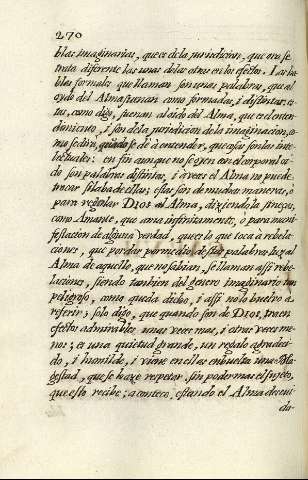 270
blas imaginarias, que es de la jurisdicion, que ora se
trata diferente las unas de las otras en los efectos. Las ha
blas formales que llaman son unas palabras, que al
oydo del Alma suenan como formadas, i distintas: es
tas, como digo, suenan al oido del Alma, que es el enten
dimiento, i son de la jurisdicion de la imaginacion, co
mo se dira, quando se dè à entender, que assi son las inte
lectuales: en fin aunque no se oyen en el corporal oi
do son palabras distintas, i à veces el Alma no puede
trocar silaba de ellas; estas son de muchas maneras, ò
para regalar DIOS al Alma, diziendola finezas,
como Amante, que ama infinitamente, ò para mani
festacion de alguna verdad, que es lo que toca à rebela
ciones, que por dar por medio de sus palabras luz al
Alma de aquello, que no sabian, se llaman assi rebe
laciones, siendo tambien del genero imaginario tan
peligroso, como queda dicho, i assi no lo buelvo a
referir; solo digo, que quando son de DIOS, traen
efectos admirables unas veces mas, i otras veces me
nos; es una quietud grande, un regalo agradeci
do, i humilde, i viene en ellas embuelta una Ma
gestad, que se haze respetar, sin poder mas el sujeto,
que esto recibe; acontece, estando el Alma deseui
da-